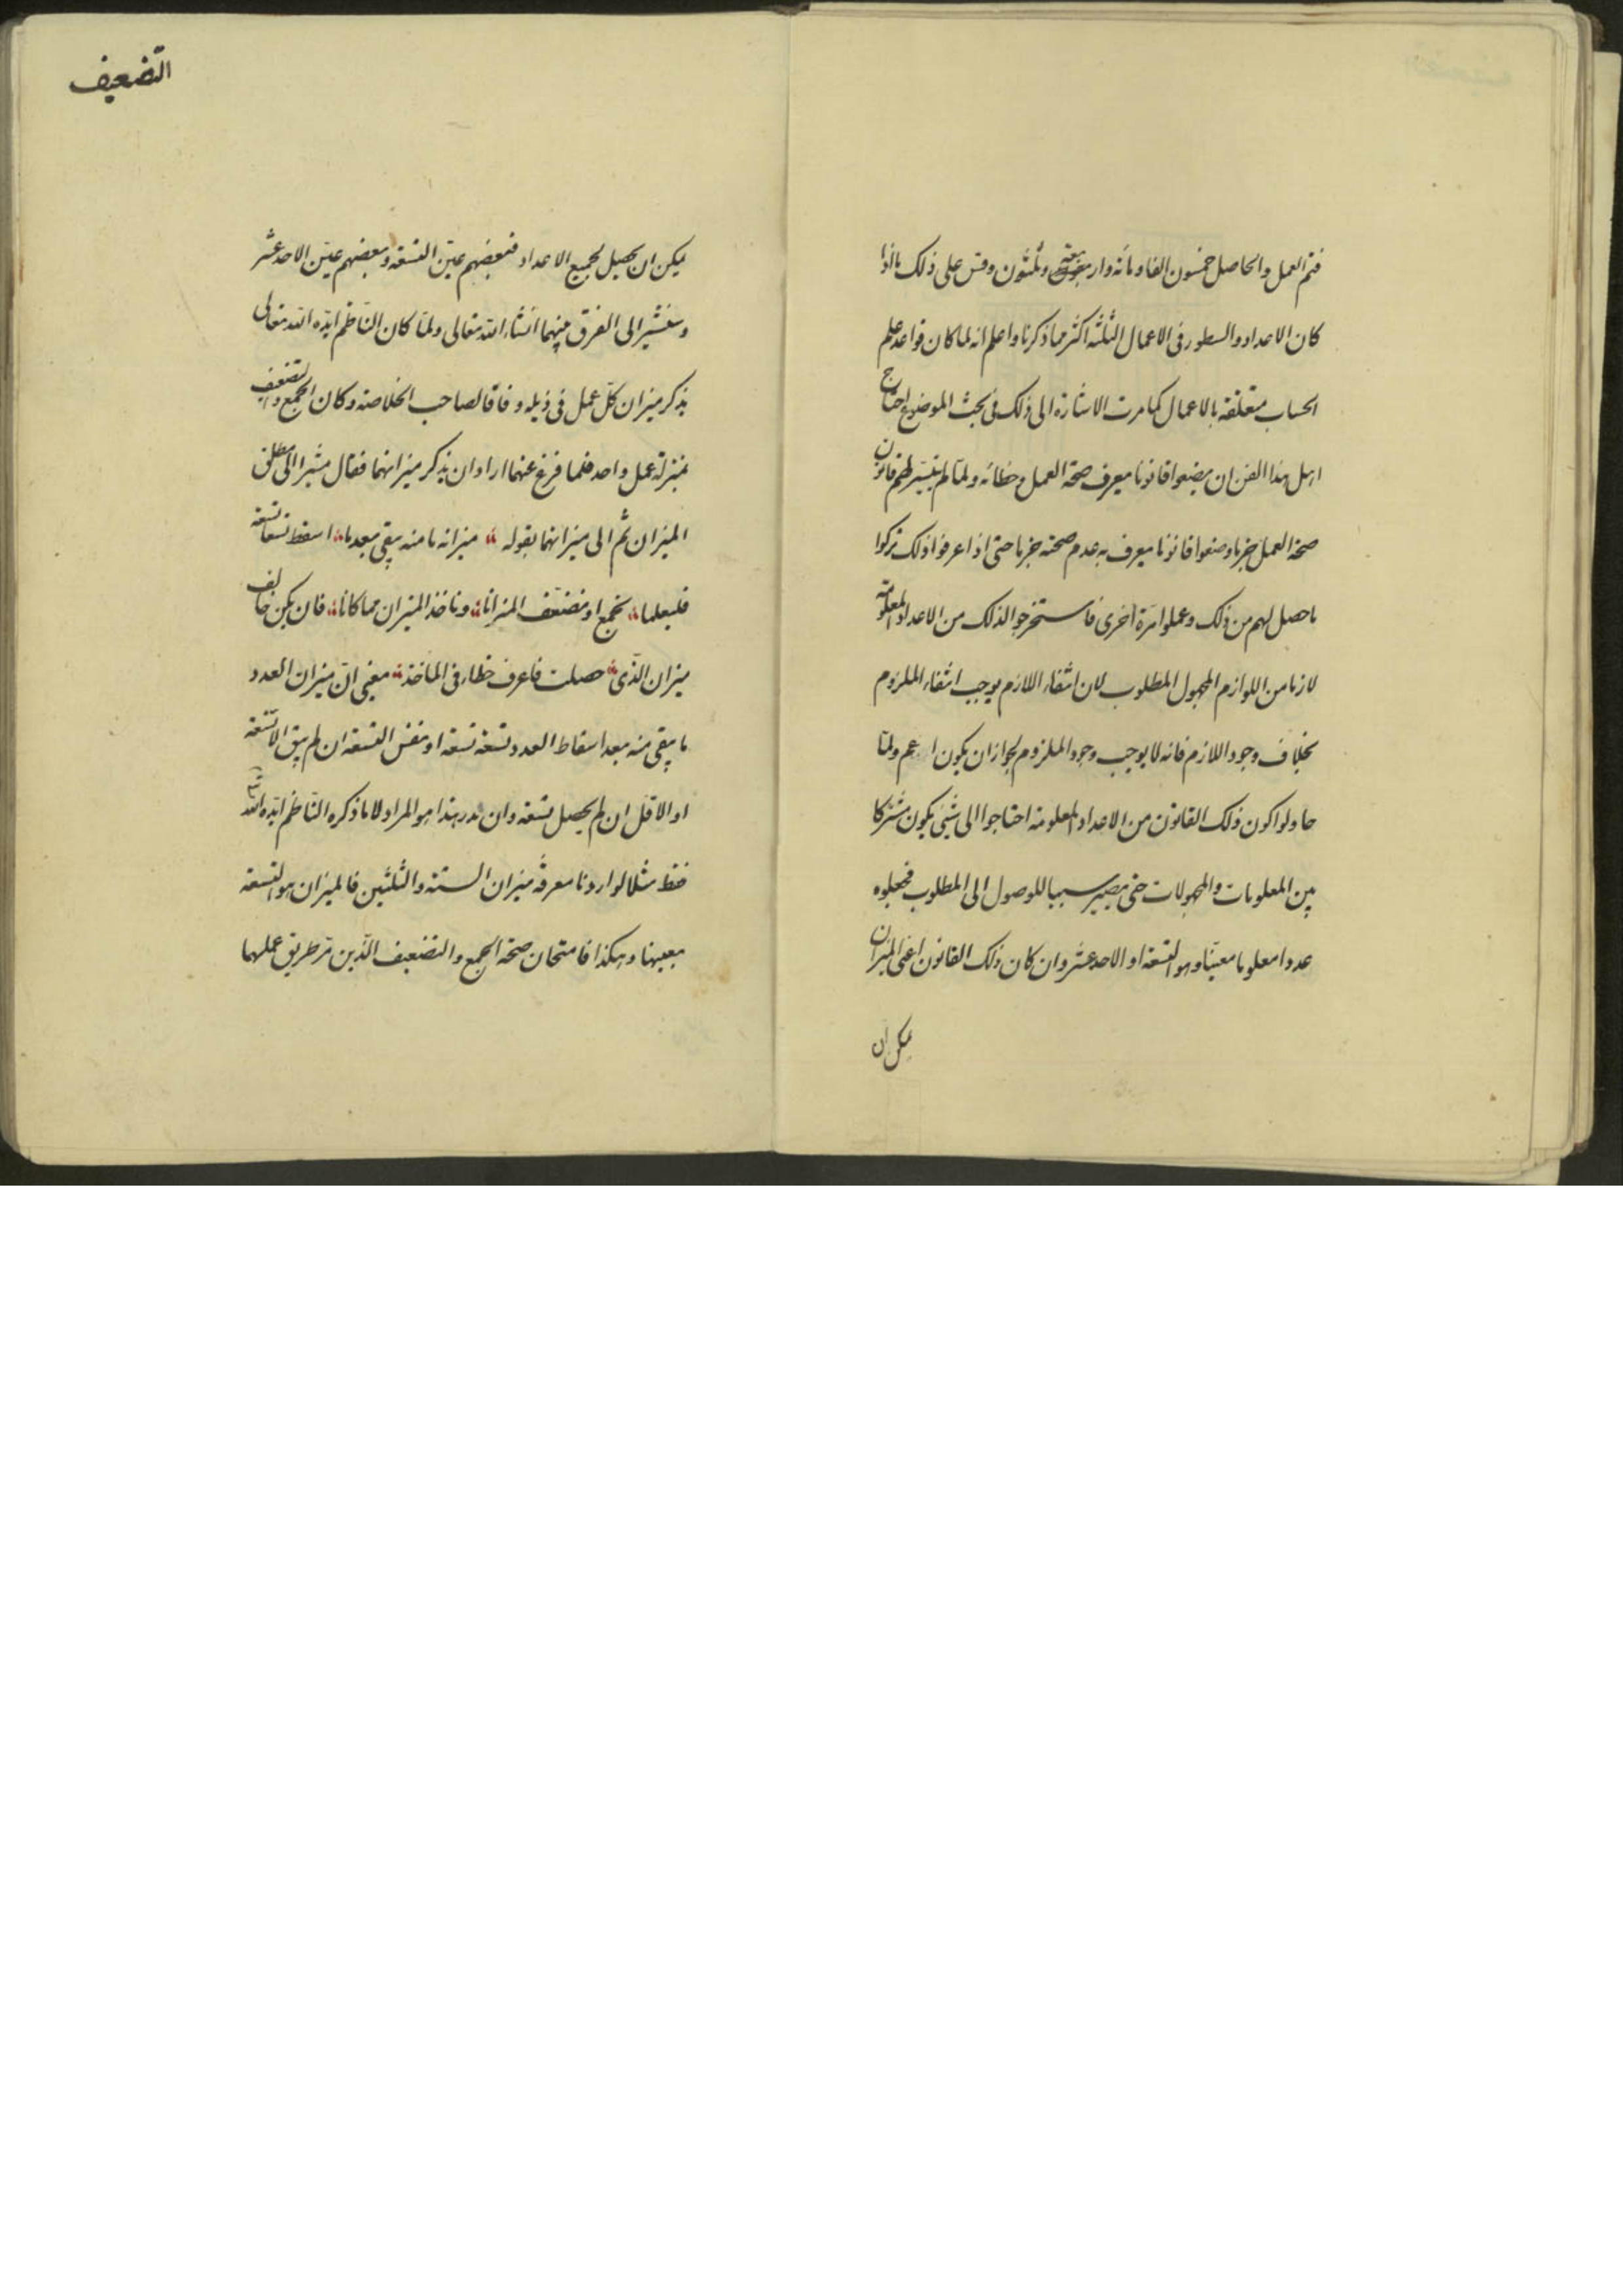 فتم العمل والحاصل خمسون الفا ومائة واربعة وثلثون وقس على ذلك ما اذا
كان الاعداد والسطور فى الاعمال الثلثة اكثر مما ذكرنا واعلم انه لما كان قواعد علم
الحساب متعلقة بالاعمال كما مرت الاشارة الى ذلك فى بحث الموضوع احتاج
اهل هذا الفن ان يضعوا قانونا يعرف صحة العمل وخطائه ولما لم يتيسر لهم قانون
صحة العمل جزما وضعوا قانونا يعرف به عدم صحته جزما حتى اذا عرفوا ذلك تركوا
ما حصل لهم من ذلك وعملوا مرة اخرى فاستخرجوا لذلك من الاعداد المعلومة
لازما من اللوازم المجهول المطلوب لان انتفاء اللازم يوجب انتفاء الملزوم
بخلاف وجود اللازم فانه لا يوجب وجود الملزوم لجواز ان يكون اعم ولما
حاولوا كون ذلك القانون من الاعداد المعلومة احتاجوا الى شئ يكون مشتركا
بين المعلومات والمجهولات حتى يصير سببا للوصول الى المطلوب فجعلوه
عددا معلوما معينا وهو التسعة او الاحد عشر وان كان ذلك القانون اعنى الميزان
يمكن ان
التضعيف
يمكن ان يحصل لجميع الاعداد فبعضهم عين التسعة وبعضهم عين الاحد عشر
وسنشير الى الفرق بينهما انشاء الله تعالى ولما كان الناظم ايده الله تعالى
يذكر ميزان كل عمل فى ذيله وفاقا لصاحب الخلاصة وكان الجمع والتضعيف
بمنزلة عمل واحد فلما فرغ عنهما اراد ان يذكر ميزانهما فقال مشيرا الى مطلق
الميزان ثم الى ميزانهما بقوله ميزانه ما منه يبقى بعدما اسقط تسعا تسعة
فليعلما نجمع او نضعف الميزانا وناخذ الميزان مما كانا فان يكن خالف
ميزان الذى حصلت فاعرف خطاء فى الماخذ يعنى ان ميزان العدد
ما يبقى منه بعد اسقاط العدد تسعة تسعة او نفس التسعة ان لم يبق الا تسعة
او الاقل ان لم يحصل تسعة وان ندر هذا هو المراد لا ما ذكره الناظم ايده الله
فقط مثلا لو اردنا معرفة ميزان الستة والثلثين فالميزان هو التسعة
بعينها وهكذا فامتحان صحة الجمع والتضعيف الذين مر طريق عملهما